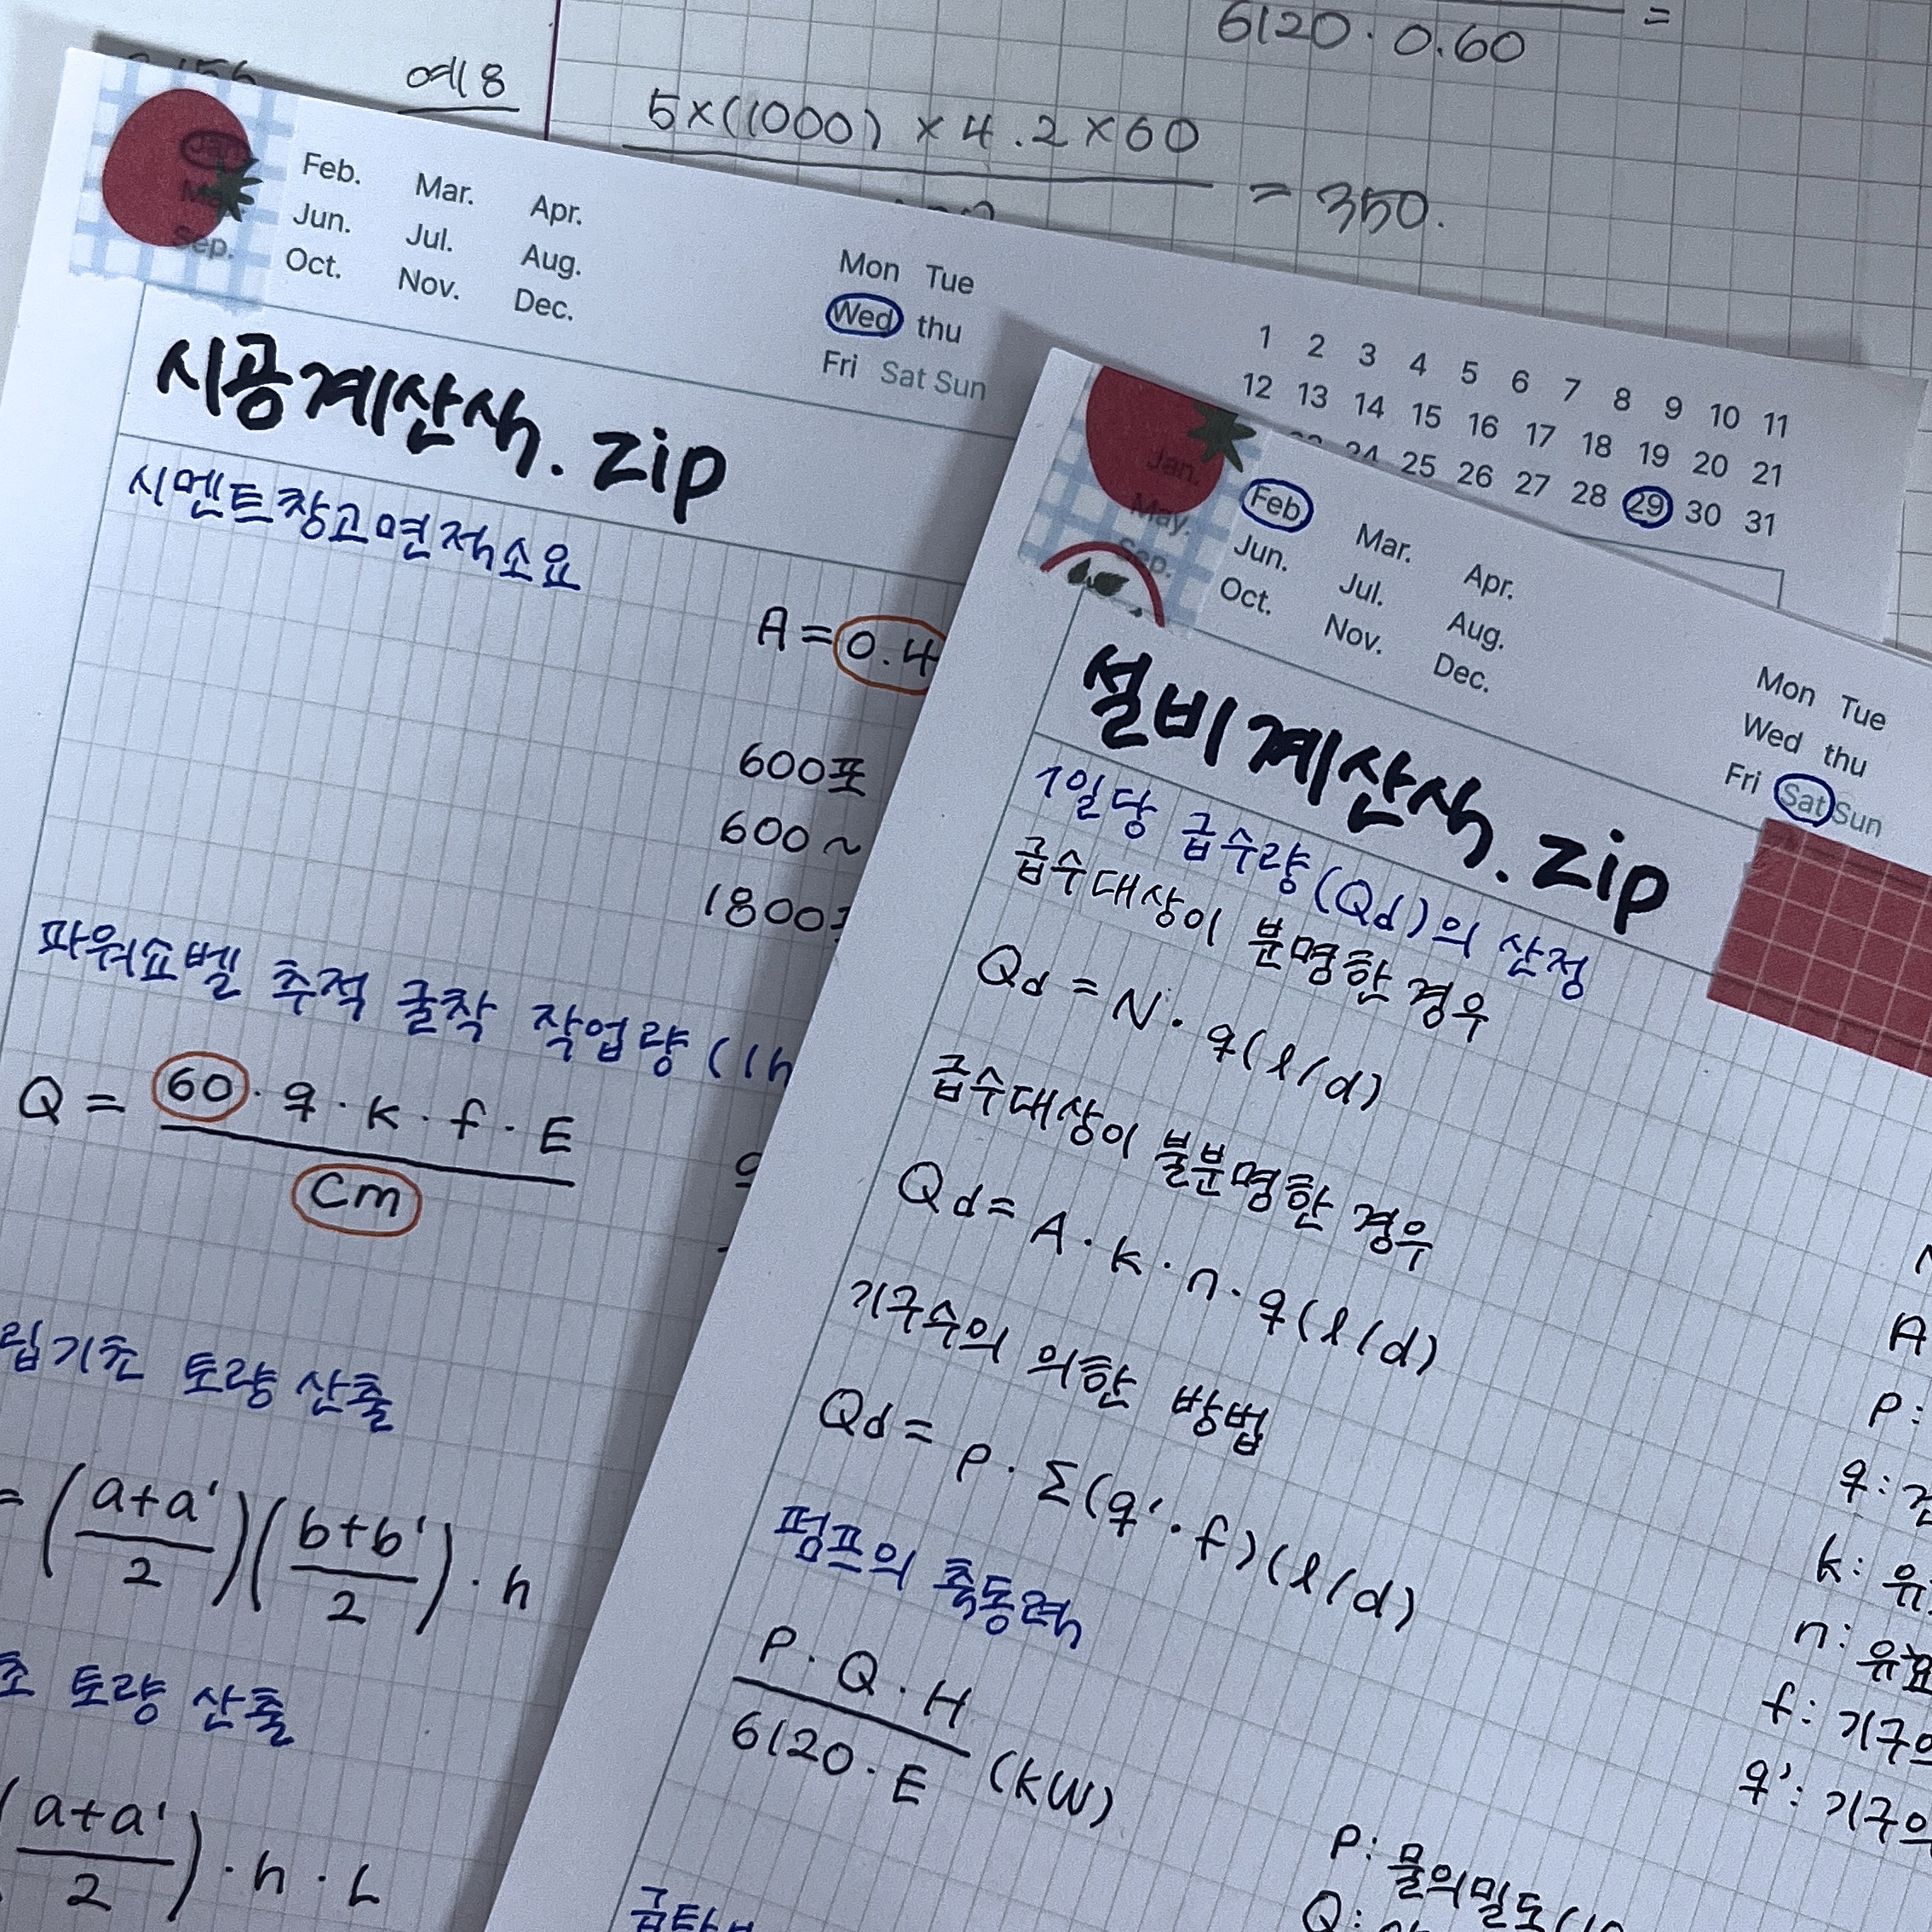 6120 · 0.60 =
예 8
5×(1000) × 4.2 × 60 = 350.
Jan. Feb. Mar. Apr.
Jun. Jul. Aug.
Sep. Oct. Nov. Dec.
Mon Tue
Wed thu
Fri Sat Sun
1 2 3 4 5 6 7 8 9 10 11
12 13 14 15 16 17 18 19 20 21
24 25 26 27 28 29 30 31
시공계산식.zip
시멘트창고면적소요
A = 0.4
600포
600 ~
1800
파워쇼벨 추적 굴착 작업량 (1h
Q = 60 · q · k · f · E
Cm
립기초 토량 산출
= (a+a' / 2)(b+b' / 2) · h
초 토량 산출
(a+a' / 2) · h · L
Jan. Feb Mar. Apr.
May. Jun. Jul. Aug.
Sep. Oct. Nov. Dec.
Mon Tue
Wed thu
Fri Sat Sun
설비계산식.zip
1일당 급수량(Qd)의 산정
급수대상이 분명한 경우
Qd = N · q (l/d)
급수대상이 불분명한 경우
Qd = A · k · n · q (l/d)
기구수의 의한 방법
Qd = P · Σ(q' · f) (l/d)
펌프의 축동력
P · Q · H
6120 · E (kW)
A
P:
q:
k: 유
n: 유효
f: 기구의
q': 기구의
P: 물의밀도(10
Q:
급탕